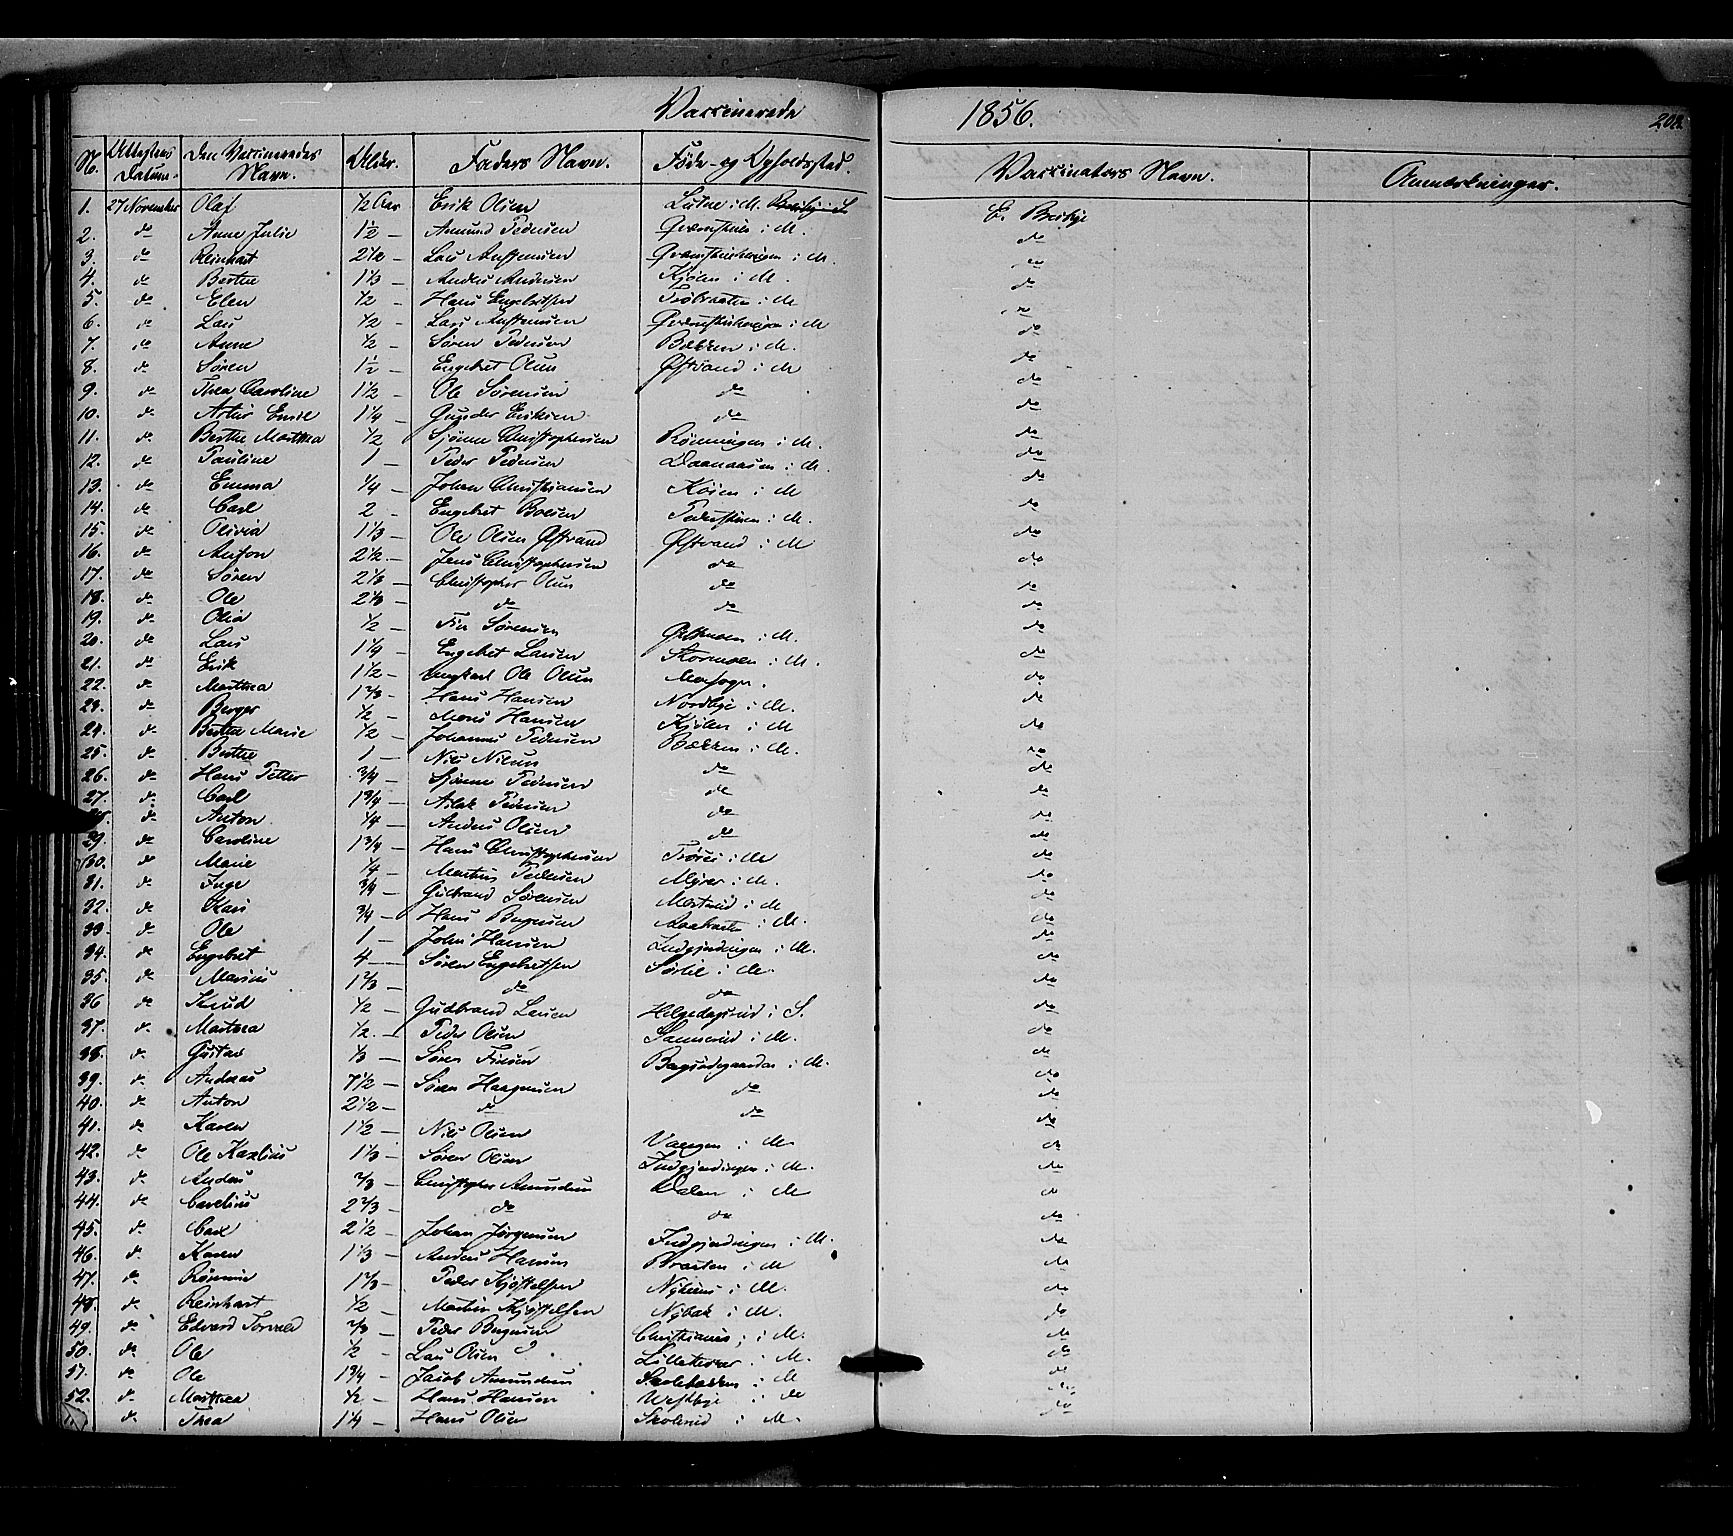 Vaccinerede 1856. 202.
No. Attestens Datum. Den Vaccineredes Navn. Alder. Faders Navn. Føde- og Opholdssted. Vaccinators Navn. Anmærkninger.
1. 27 November Olaf 1/2 Aar Erik Olsen i M. E. Breibye
2. do Anne Julie 1 1/2 - Amund Pedersen i M. do
3. do Reinhart 2 1/2 - Lars i M. do
4. do Berthe 1 1/3 - Anders Andersen Kjølen i M. do
5. do Elen 1/2 - Hans Engebretsen i M do
6. do Lars 1/2 - Lars i M do
7. do Anne 1/2 - Søren Pedersen Bakken i M. do
8. do Søren 1 1/2 - Engebret Olsen Østrand i M do
9. do Thea Caroline 1 1/2 - Ole Sørensen do do
10. do Emil 1 1/4 - Gunder Eriksen do do
11. do Berthe Mathea 1/2 Sjønne Christophersen Rønningen i M. do
12. do Pauline 1 - Peder Pedersen i M. do
13. do Emma 1/4 - Johan Christiansen i M do
14. do Carl 2 - Engebret Boesen i M. do
15. do Olivia 1 1/3 - Ole Olsen Østrand Østrand i M do
16. do Anton 2 1/2 - Jens Christophersen do do
17. do Søren 2 1/3 - Christopher Olsen do do
18. do Ole 2 1/3 - do do do
19. do Olia 1/2 - Sørensen i M. do
20. do Lars 1 1/4 - Engebret Larsen Stormoen i M. do
21. do Erik 1 1/2 - Ole Olsen do
22. do Marthea 1 2/3 - Hans Hansen Nordbye i M. do
23. do Berger 1/2 - Mons Hansen Kjølen i M do
24. do Berthe Marie 1/2 - Johannes Pedersen Bakken i M. do
25. do Berthe 1 - Nils Nilsen do do
26. do Hans Petter 3/4 - Sjønne Pedersen do do
27. do Carl 1 3/4 - Aslak Pedersen do do
28. do Anton 1/4 - Anders Olsen do do
29. do Caroline 1 3/4 - Hans Christophersen i M do
30. do Marie 1/4 - Martin Pedersen Myrer i M. do
31. do Inge 3/4 - Gudbrand Sørensen i M do
32. do Kari 3/4 - Hans i M. do
33. do Ole 1 - John Hansen Indgjerdingen i M. do
34. do Engebret 4 - Søren Engebretsen Sørlie i M. do
35. do Marius 1 2/3 - do do do
36 do Knud 1/2 - Gudbrand Larsen i S. do
37. do Marthea 1/2 - Peder Olsen i M. do
38. do Gustav 1/3 - Søren i M. do
39. do Andreas 7 1/2 - Søren Haagensen do do
40. do Anton 2 1/2 - do do do
41. do Karen 1 1/2 - Nils Olsen Vangen i M. do
42. do Ole Karlius 1 1/3 - Søren Olsen Indgjerdingen i M. do
43. do Anders 2/3 - Christopher Amundsen Dalen i M do
44. do Carelius 2 2/3 - do do do
45. do Carl 2 1/2 - Johan Jørgensen Indgjerdingen i M. do
46. do Karen 1 1/3 - Anders Hansen Braaten i M do
47. do 1 2/3 - Peder Kjøstelsen i M. do
48. do Reinhart 1/2 - Martin Kjøstelsen Nybak i M. do
49. do Edvard Torvald 2/3 - Peder i M. do
50. do Ole 1/2 - Lars Olsen i M. do
51. do Ole 1 3/4 - Jacob Amundsen i M do
52. do Marthea 1/2 - Hans Hansen Westbye i do do
do Thea 1 1/4 - Hans Olsen i M. do